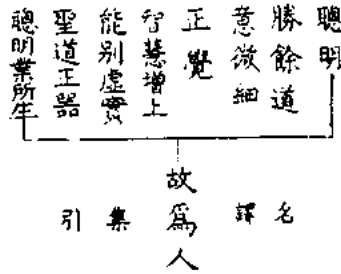 聰明
勝餘道
意微細
正覺
智慧增上
能别虛實
聖道正器
聰明業所生
故爲人
名譯集引